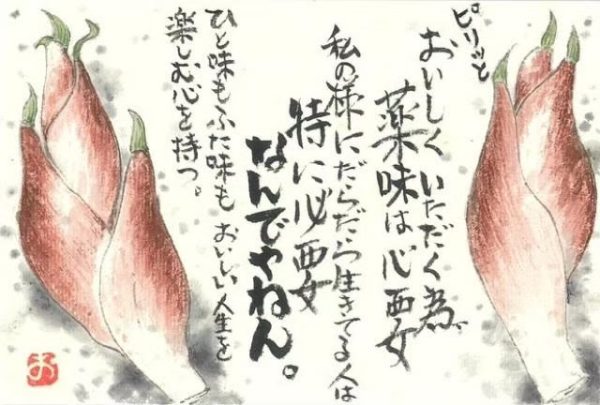 ピリッと
おいしくいただく為
薬味は心西女
私の様にだらだら生きてる人は
特に心西女
なんでやねん。
ひと味もふた味もおいしい人生を
楽しむ心を持つ。
お